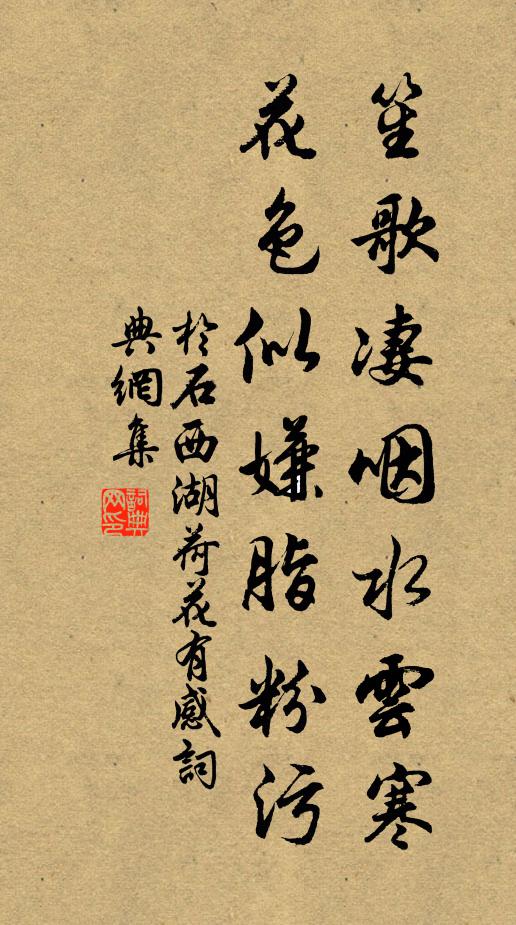 笙歌凄咽水雲寒
花色似嫌脂粉污
於石西湖荷花有感詞
典網集
詞典網印